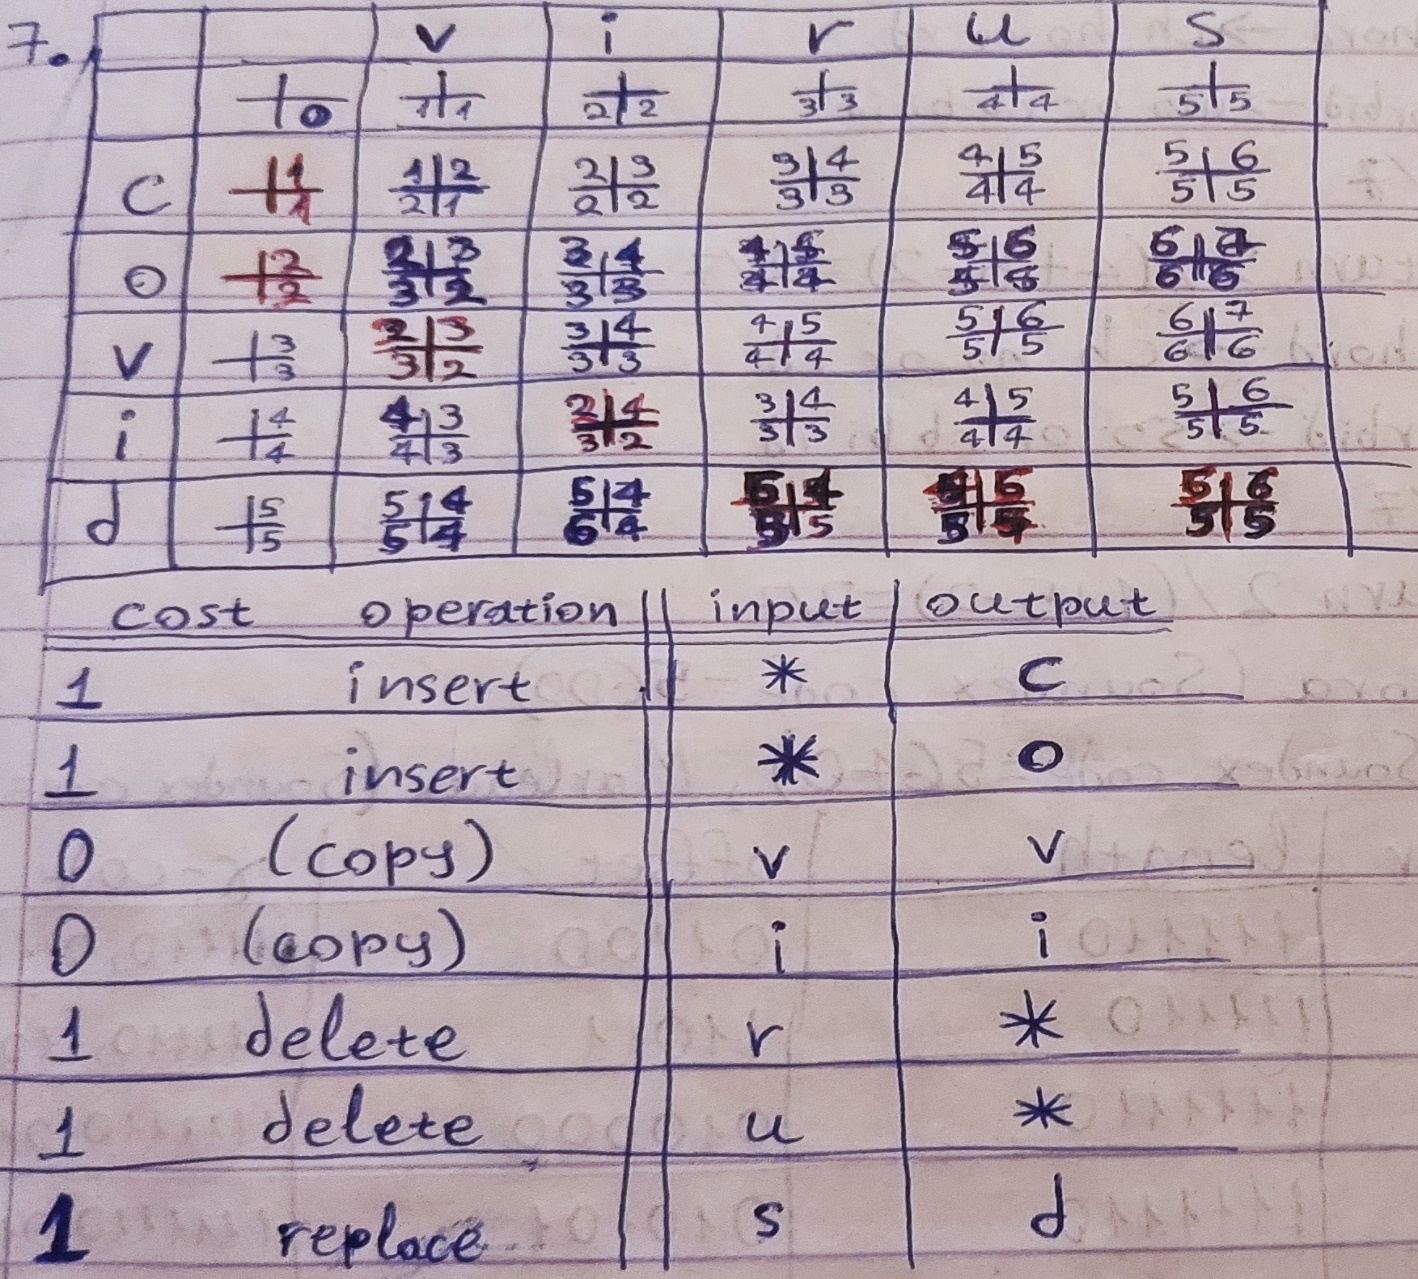 7. v i r u s
0 1 1 2 2 3 3 4 4 5 5
c 1 1 1 2 2 1 2 3 2 2 3 4 3 3 4 5 4 4 5 6 5 5
o 2 2 2 3 3 2 3 4 3 3 4 5 4 4 5 6 5 5 6 6
v 3 3 2 3 3 2 3 4 3 3 4 5 4 4 5 6 5 5 6 7 6 6
i 4 4 4 3 4 3 2 4 3 2 3 4 3 3 4 5 4 4 5 6 5 5
d 5 5 5 4 5 4 5 4 6 4 5 5 6 5 5
cost operation input output
1 insert * c
1 insert * o
0 (copy) v v
0 (copy) i i
1 delete r *
1 delete u *
1 replace s d